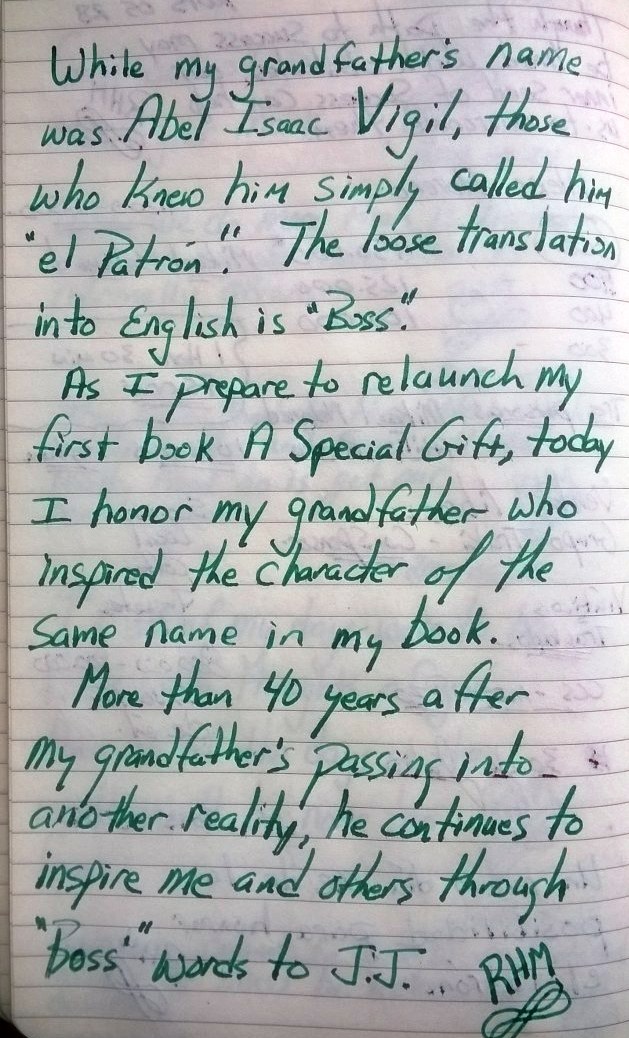 While my grandfather's name
was Abel Isaac Vigil, those
who knew him simply called him
"el Patrón." The loose translation
into English is "Boss."
As I prepare to relaunch my
first book A Special Gift, today
I honor my grandfather who
inspired the character of the
same name in my book.
More than 40 years after
my grandfather's passing into
another reality, he continues to
inspire me and others through
"Boss'" words to J.J.
RHM